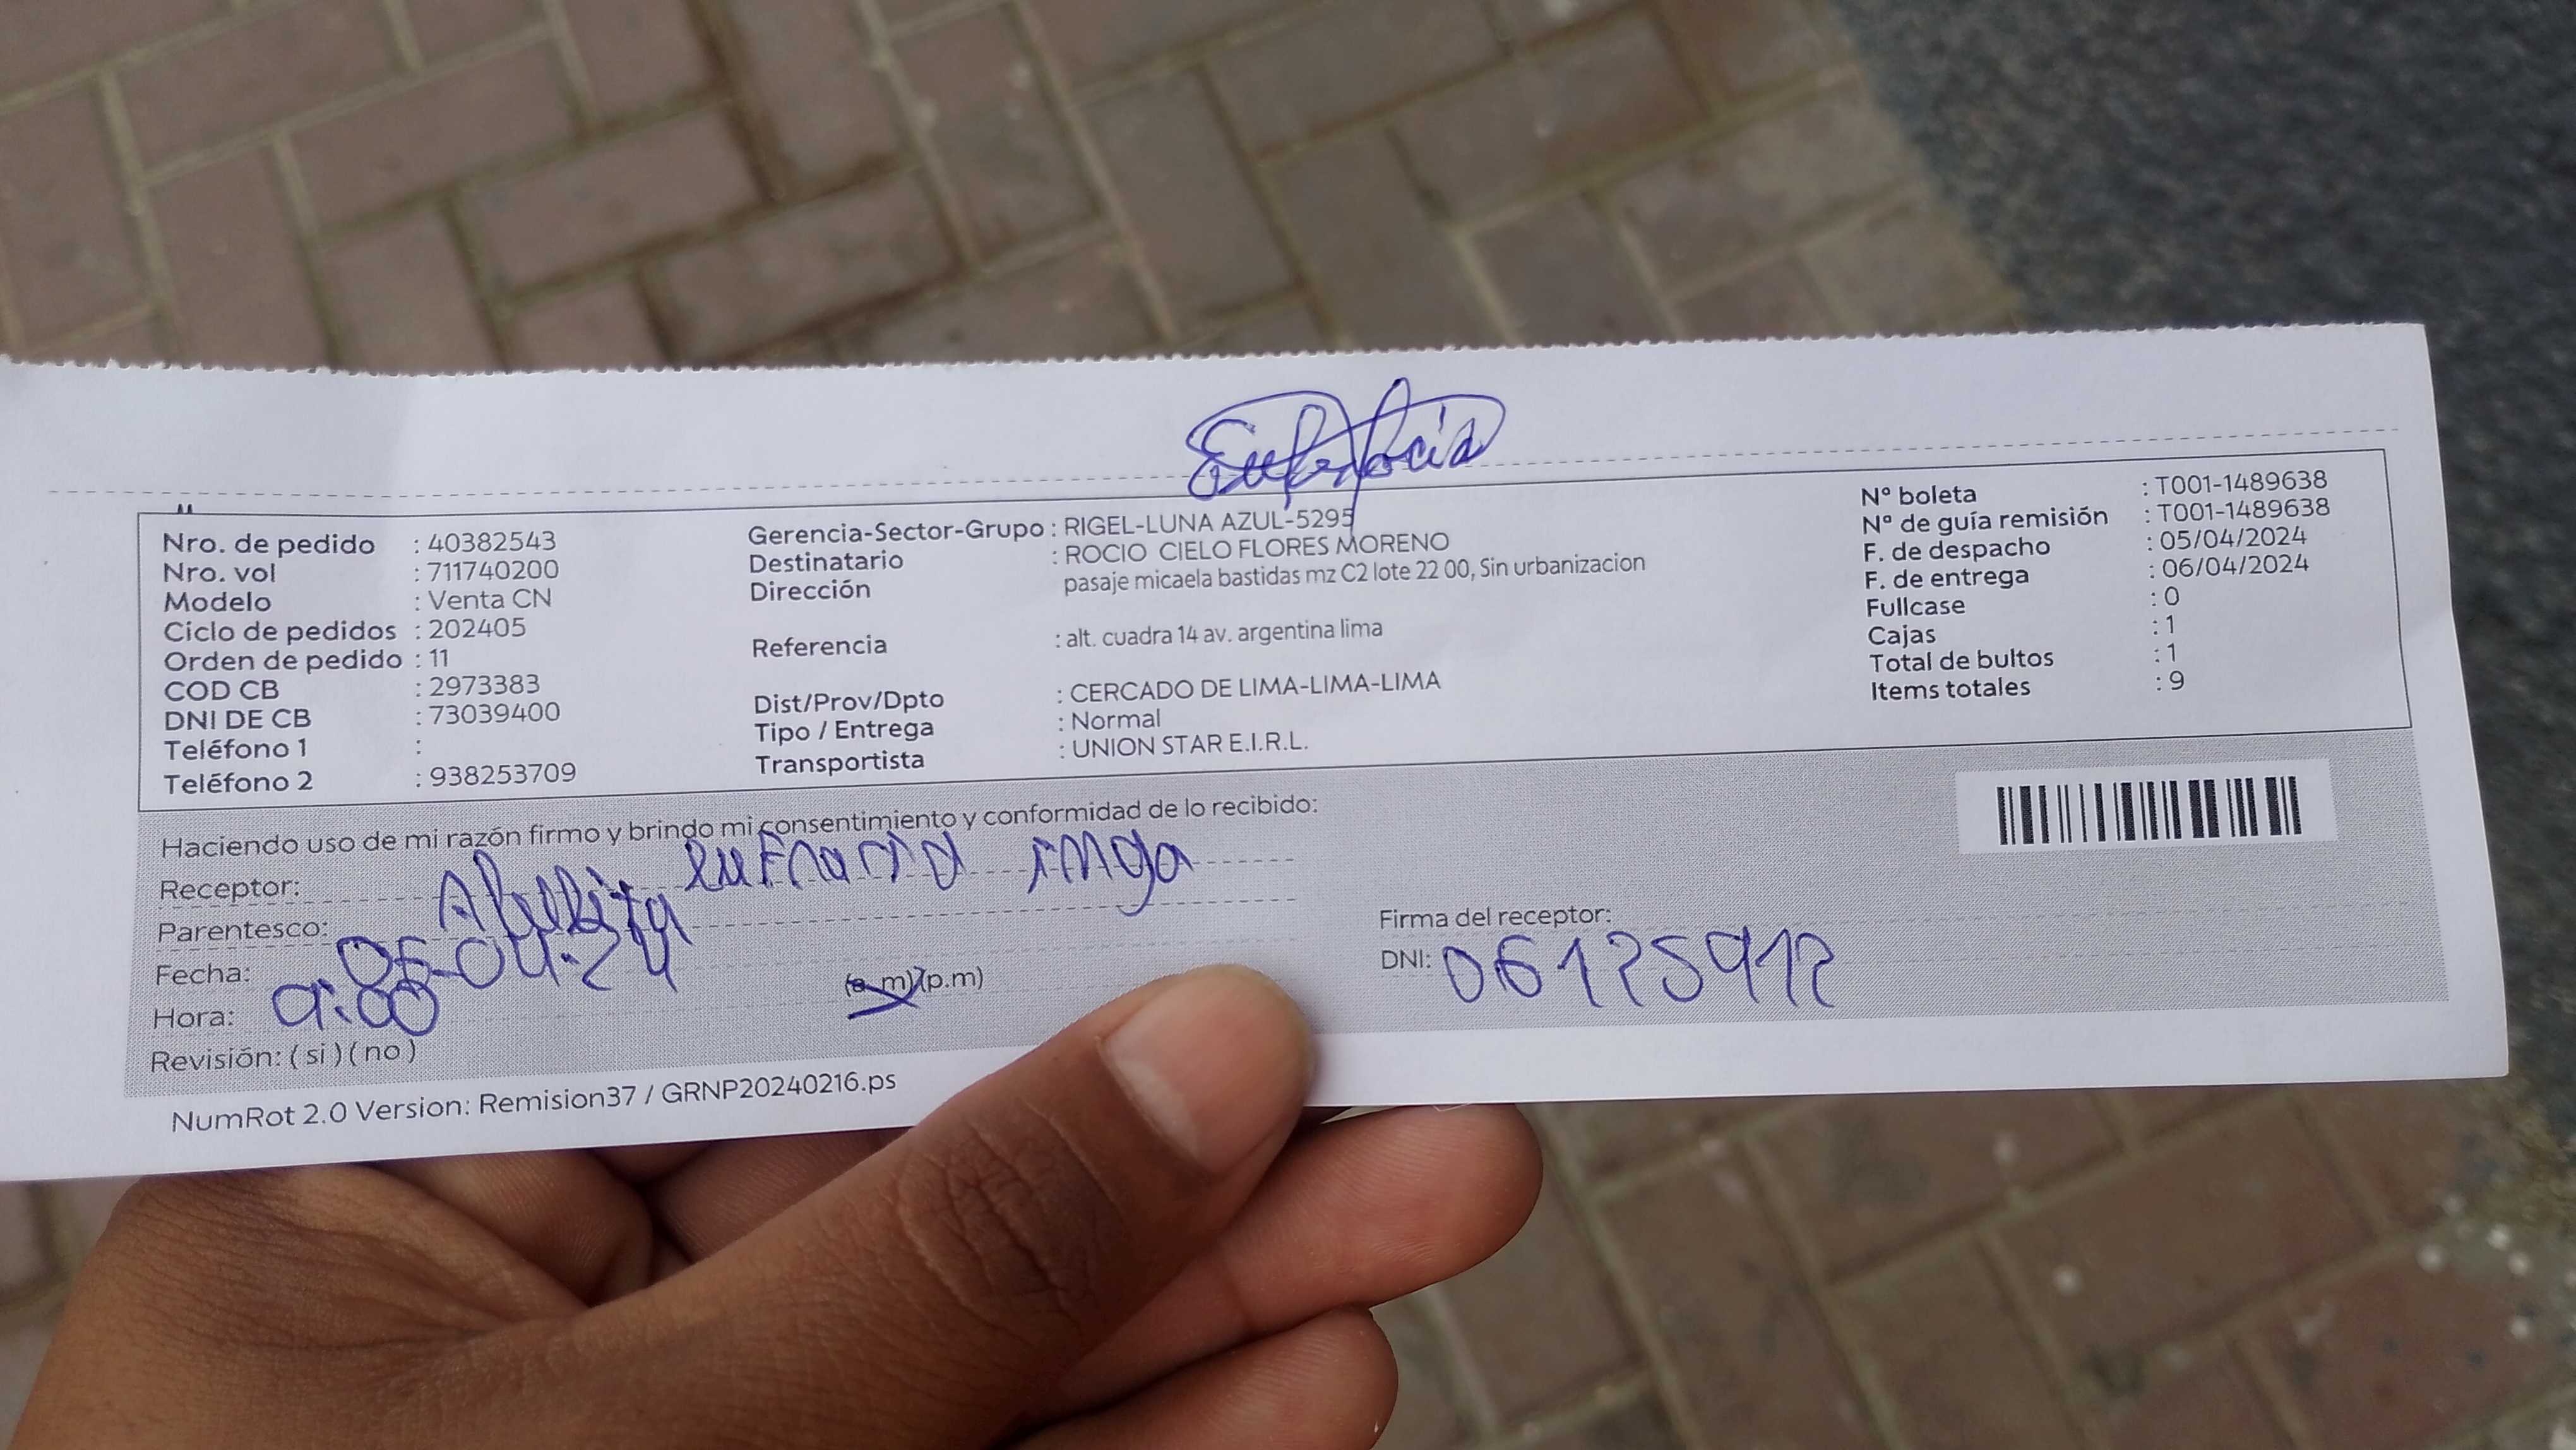 Nro. de pedido : 40382543
Nro. vol : 711740200
Modelo : Venta CN
Ciclo de pedidos : 202405
Orden de pedido : 11
COD CB : 2973383
DNI DE CB : 73039400
Teléfono 1 :
Teléfono 2 : 938253709
Gerencia-Sector-Grupo : RIGEL-LUNA AZUL-5295
Destinatario : ROCIO CIELO FLORES MORENO
Dirección pasaje micaela bastidas mz C2 lote 22 00, Sin urbanizacion
Referencia : alt. cuadra 14 av. argentina lima
Dist/Prov/Dpto : CERCADO DE LIMA-LIMA-LIMA
Tipo / Entrega : Normal
Transportista : UNION STAR E.I.R.L.
N° boleta : T001-1489638
N° de guía remisión : T001-1489638
F. de despacho : 05/04/2024
F. de entrega : 06/04/2024
Fullcase : 0
Cajas : 1
Total de bultos : 1
Items totales : 9
Haciendo uso de mi razón firmo y brindo mi consentimiento y conformidad de lo recibido:
Receptor: inga
Parentesco: Abuelita
Fecha: -04-24
Hora: 9:00 (a.m)(p.m)
Revisión: ( si ) ( no )
Firma del receptor:
DNI: 06125912
NumRot 2.0 Version: Remision37 / GRNP20240216.ps